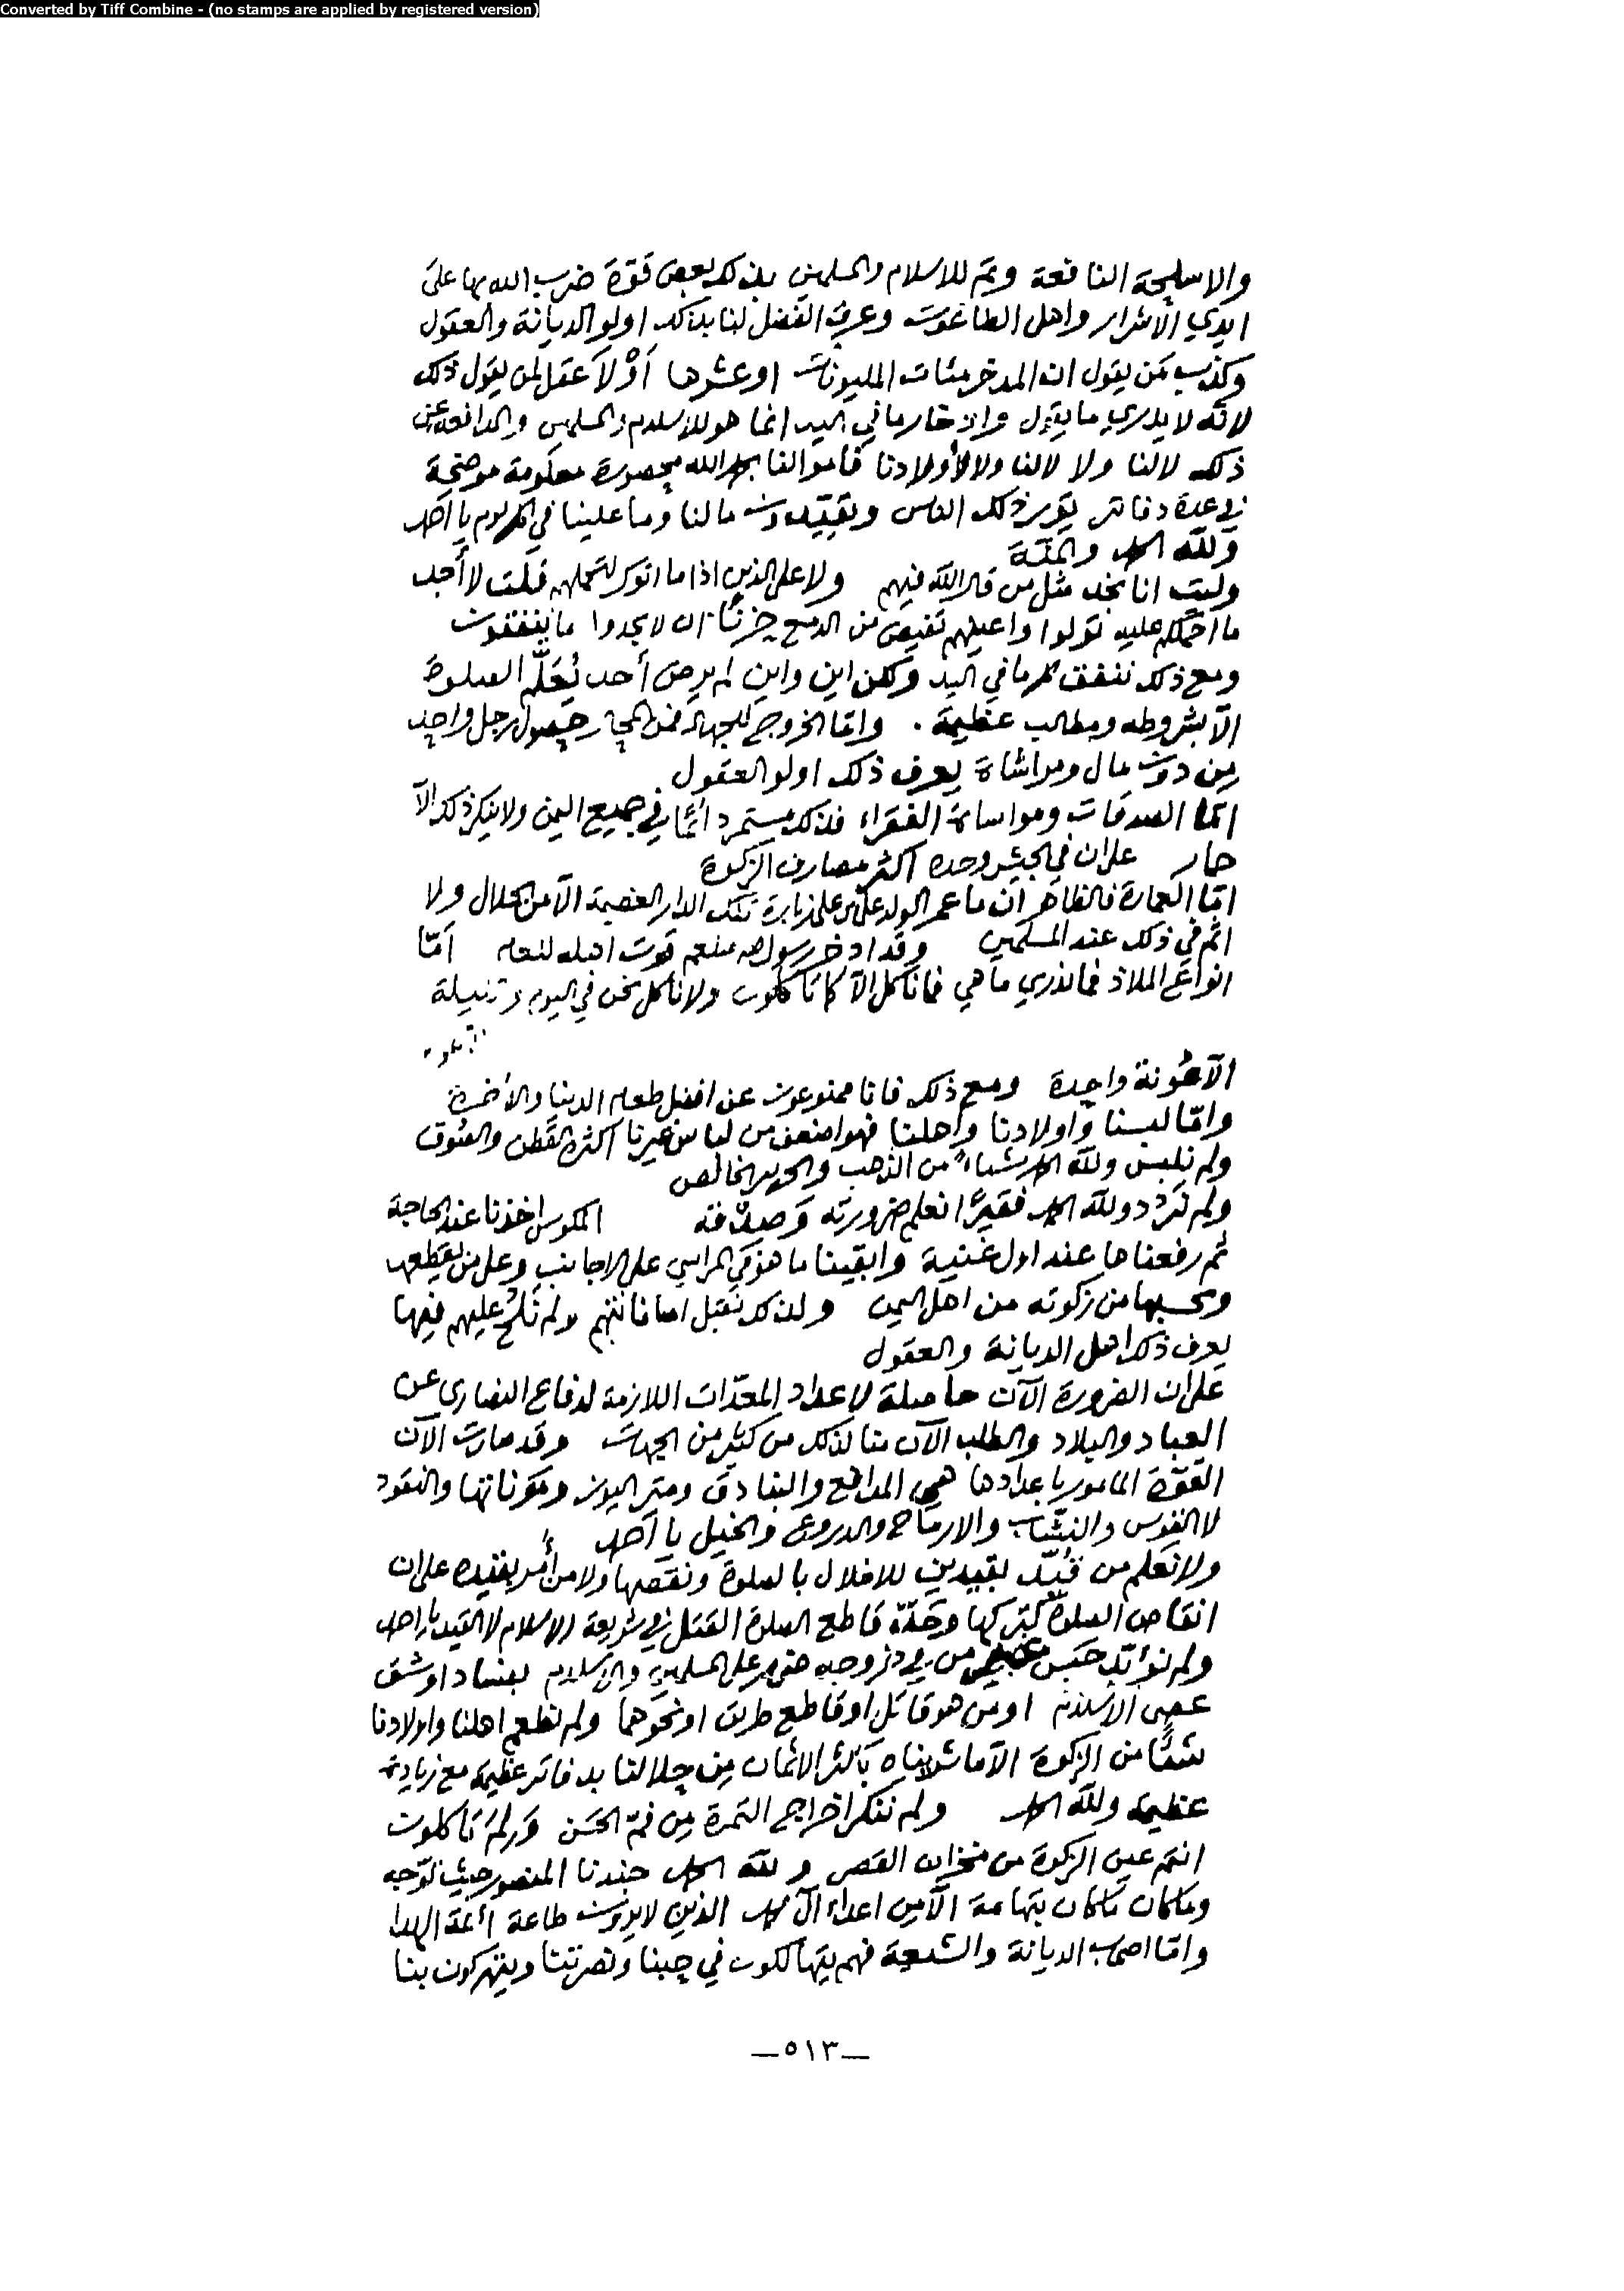 Converted by Tiff Combine - (no stamps are applied by registered version)
والاسلحة النافعة ويتم للاسلام والمسلمين بذلك بعض قوة ضرب الله بها على
ايدي الاشرار واهل الطاغوت وعرف الفضل لنا بذلك اولو الديانة والعقول
وكذب من يقول ان المدخر مئات المليونات اوعشرها أوْلاَ عقل لمن يقول ذلك
لانه لا يدري ما يقول وادخار ما في اليد انما هو للاسلام والمسلمين والمدافعة عن
ذلك لا لنا ولا لالنا ولا لأولادنا فاموالنا بحمد الله محصورة معلومة موضحة
في عدة دفاتر يقرر ذلك الناس ويقيدون ما لنا وما علينا في كل يوم يا احمد
ولله الحمد والمنة
وليت انا نجد مثل من قال الله فيهم ولا على الذين اذا ما اتوك لتحملهم قلت لا أجد
ما احملكم عليه تولوا واعينهم تفيض من الدمع حزنًا ان لا يجدوا ما ينفقون
ومع ذلك ننفق كلما في اليد ولكن اين واين لم يرض أحد يُعَلّم الصلوة
الاّ بشروطه ومطالب عظيمة . وامّا الخروج للجهاد فمن المحال حصول رجل واحد
مِن دون مال ومواساة يعرف ذلك اولو العقول
امّا الصدقات ومواساة الفقراء فذلك مستمر دائمًا في جميع اليمن ولا ينكر ذلك الاّ
حمار على ان في الجيش وحده اكثر مصارف الزكوة
امّا العمارة فالظاهر ان ما عمر الولد علي بن علي زبارة تلك الدار العظيمة الاّ من الحلال ولا
اثم في ذلك عند المسلمين وقد ادخر رسول الله صلعم قوت اهله للعام أمّا
انواع الملاذ فما ندري ما هي فما ناكل الاّ كما تاكلون ولا ناكل نحن في اليوم وليلة
الاّ مُونة واحدة ومع ذلك فانا ممنوعون عن افضل طعام الدنيا والأخرة
وامّا لبسنا واولادنا واهلنا فهو اضعف من لباس غيرنا اكثره القطن والصوف
ولم نلبس ولله الحمد شياءً من الذهب والحرير الخالص
ولم نَرُدّ ولله الحمد فقيرًا نعلم ضرورته وصدقه المكوس اخذنا عند الحاجة
ثم رفعناها عند اول غنية وابقينا ما هو في المراسي على الاجانب وعلى من يقطعها
ويحسبها من زكوته من اهل اليمن ولذلك نقبل امانتهم ولم نلح عليهم فيها
يعرف ذلك اهل الديانة والعقول
على ان الضرورة الآن حاصلة لاعداد المعدّات اللازمة لدفاع النصارى عن
العباد والبلاد والطلب الآن منا لذلك من كثير من الجهات وقد صارت الآن
القوّة المامور باعدادها هي المدافع والبنادق ومتر اليوز ومئوناتها والنقود
لا القوس والنشّاب والارماح والدروع والخيل يا احمد
ولا نعلم من قُيّد بقيدين للاخلال بالصلوة ونقصها ولا من أُمر بقيده على ان
انقاص الصلوة كتركها وحَدّ قاطع الصلوة القتل في شريعة الاسلام لا القيد يا احمد
ولم نؤبّد حَبْس من في خروجه ضرر على المسلمين والاسلام بفساد او شق
عصى الاسلام او من هو قاتل او قاطع طريق او نحوهما ولم نطعم اهلنا واولادنا
شيئًا من الزكوة الاّ ما شريناه باكثر الاثمان مِن حلالنا بدفاتر عظيمة مع زيادة
عظيمة ولله الحمد ولم ننكر اخراج التمرة مِن فمّ الحَسن وَلِمَ تاكلون
انتم عين الزكوة من مخزان القصر ولله الحمد جندنا المنصور حيث توجه
وما كان ما كان بتهامة الاّ مِن اعداء آل محمد الذين لا يرون طاعة ائمة الهدا
وامّا اصحاب الديانة والشيعة فهم يتهالكون في حبنا ونصرتنا ويتبركون بنا
—٥١٣—